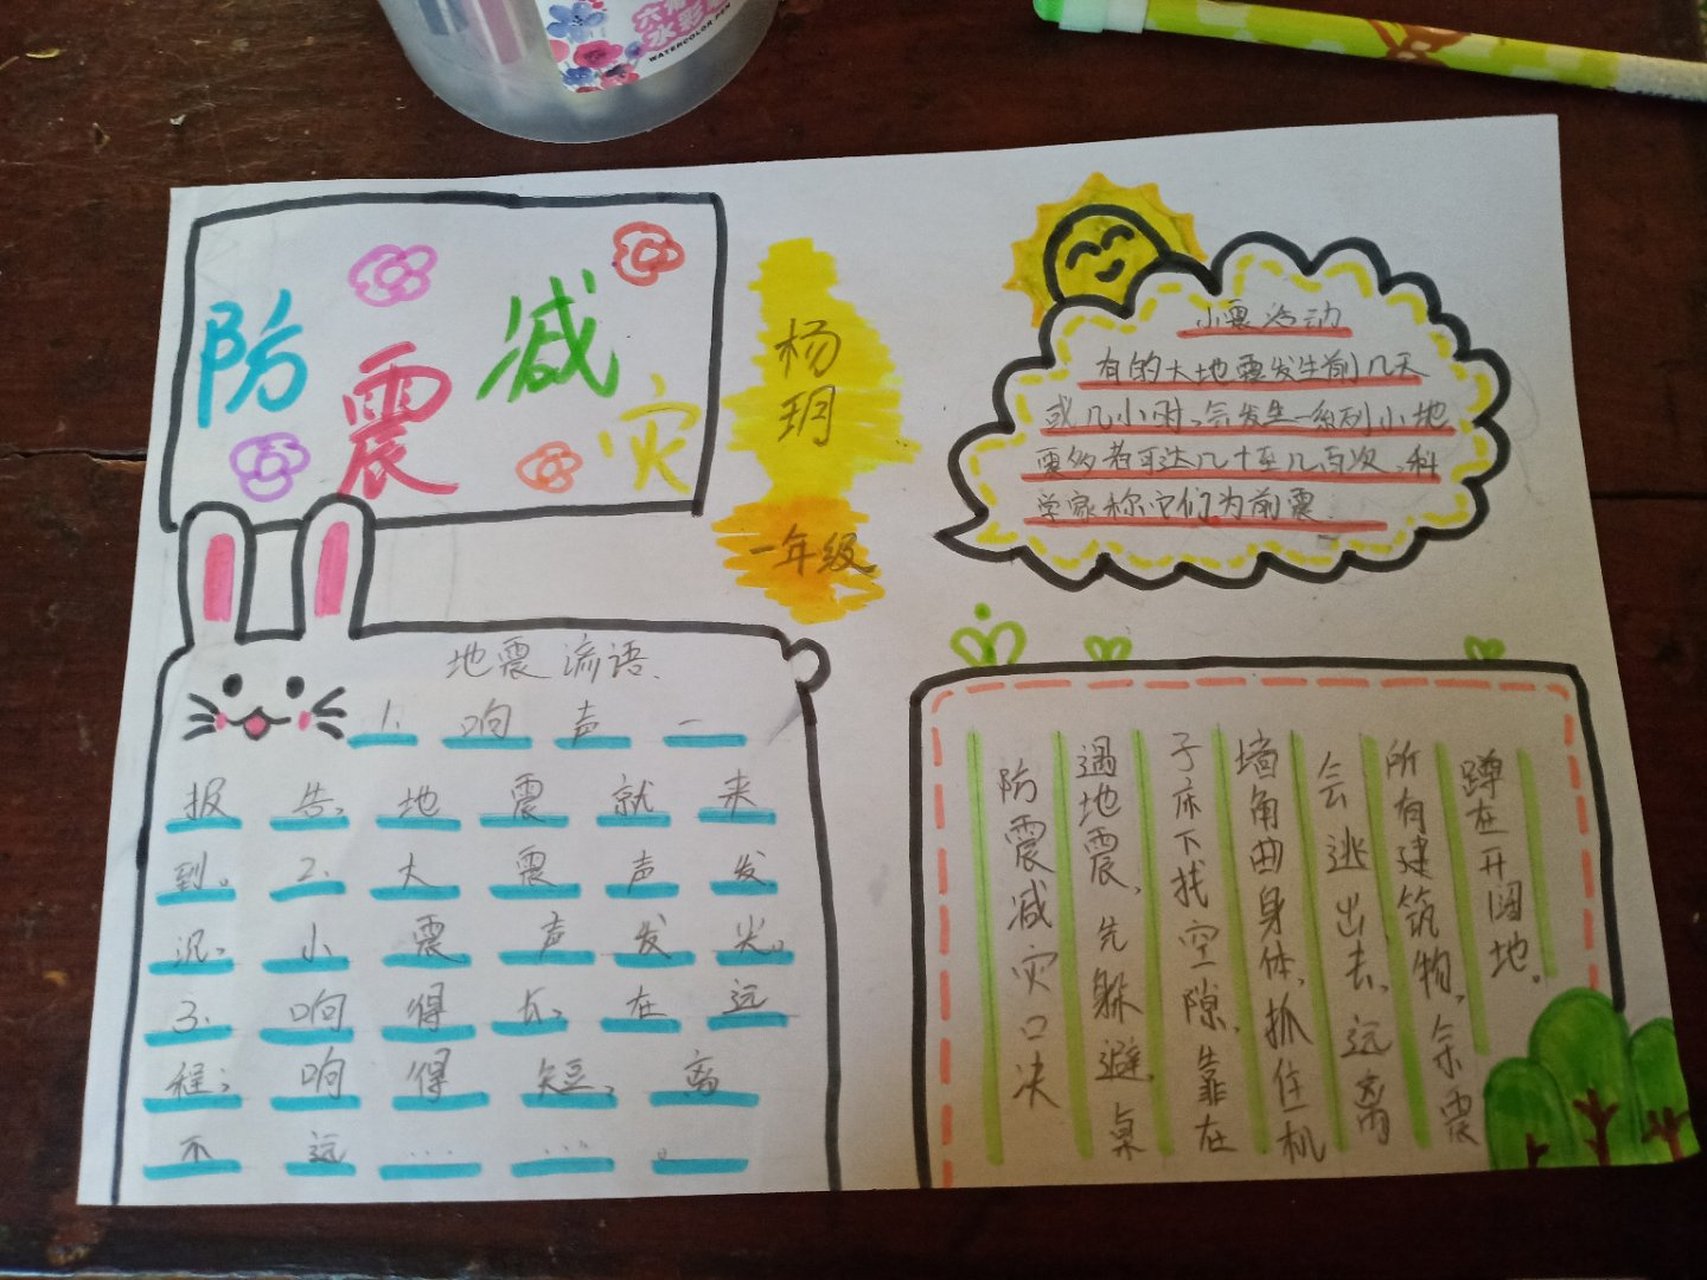 水彩
WATERCOLOR PEN
防震减灾
杨玥
一年级
小震活动
有的大地震发生前几天
或几小时,会发生一系列小地
震多者可达几十至几百次,科
学家称它们为前震.
地震流语.
1.响声一
报告,地震就来
到。2.大震声发
沉,小震声发尖。
3.响得长,在远
程;响得短,离
不远……。
防震减灾口决
遇地震,先躲避,桌
子床下找空隙,靠在
墙角曲身体,抓住机
会逃出去,远离
所有建筑物,余震
蹲在开阔地。